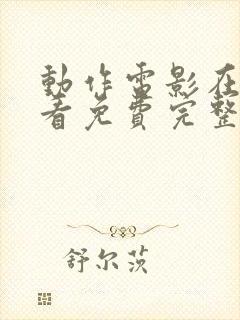 動作電影在
看免費完整
舒尔茨